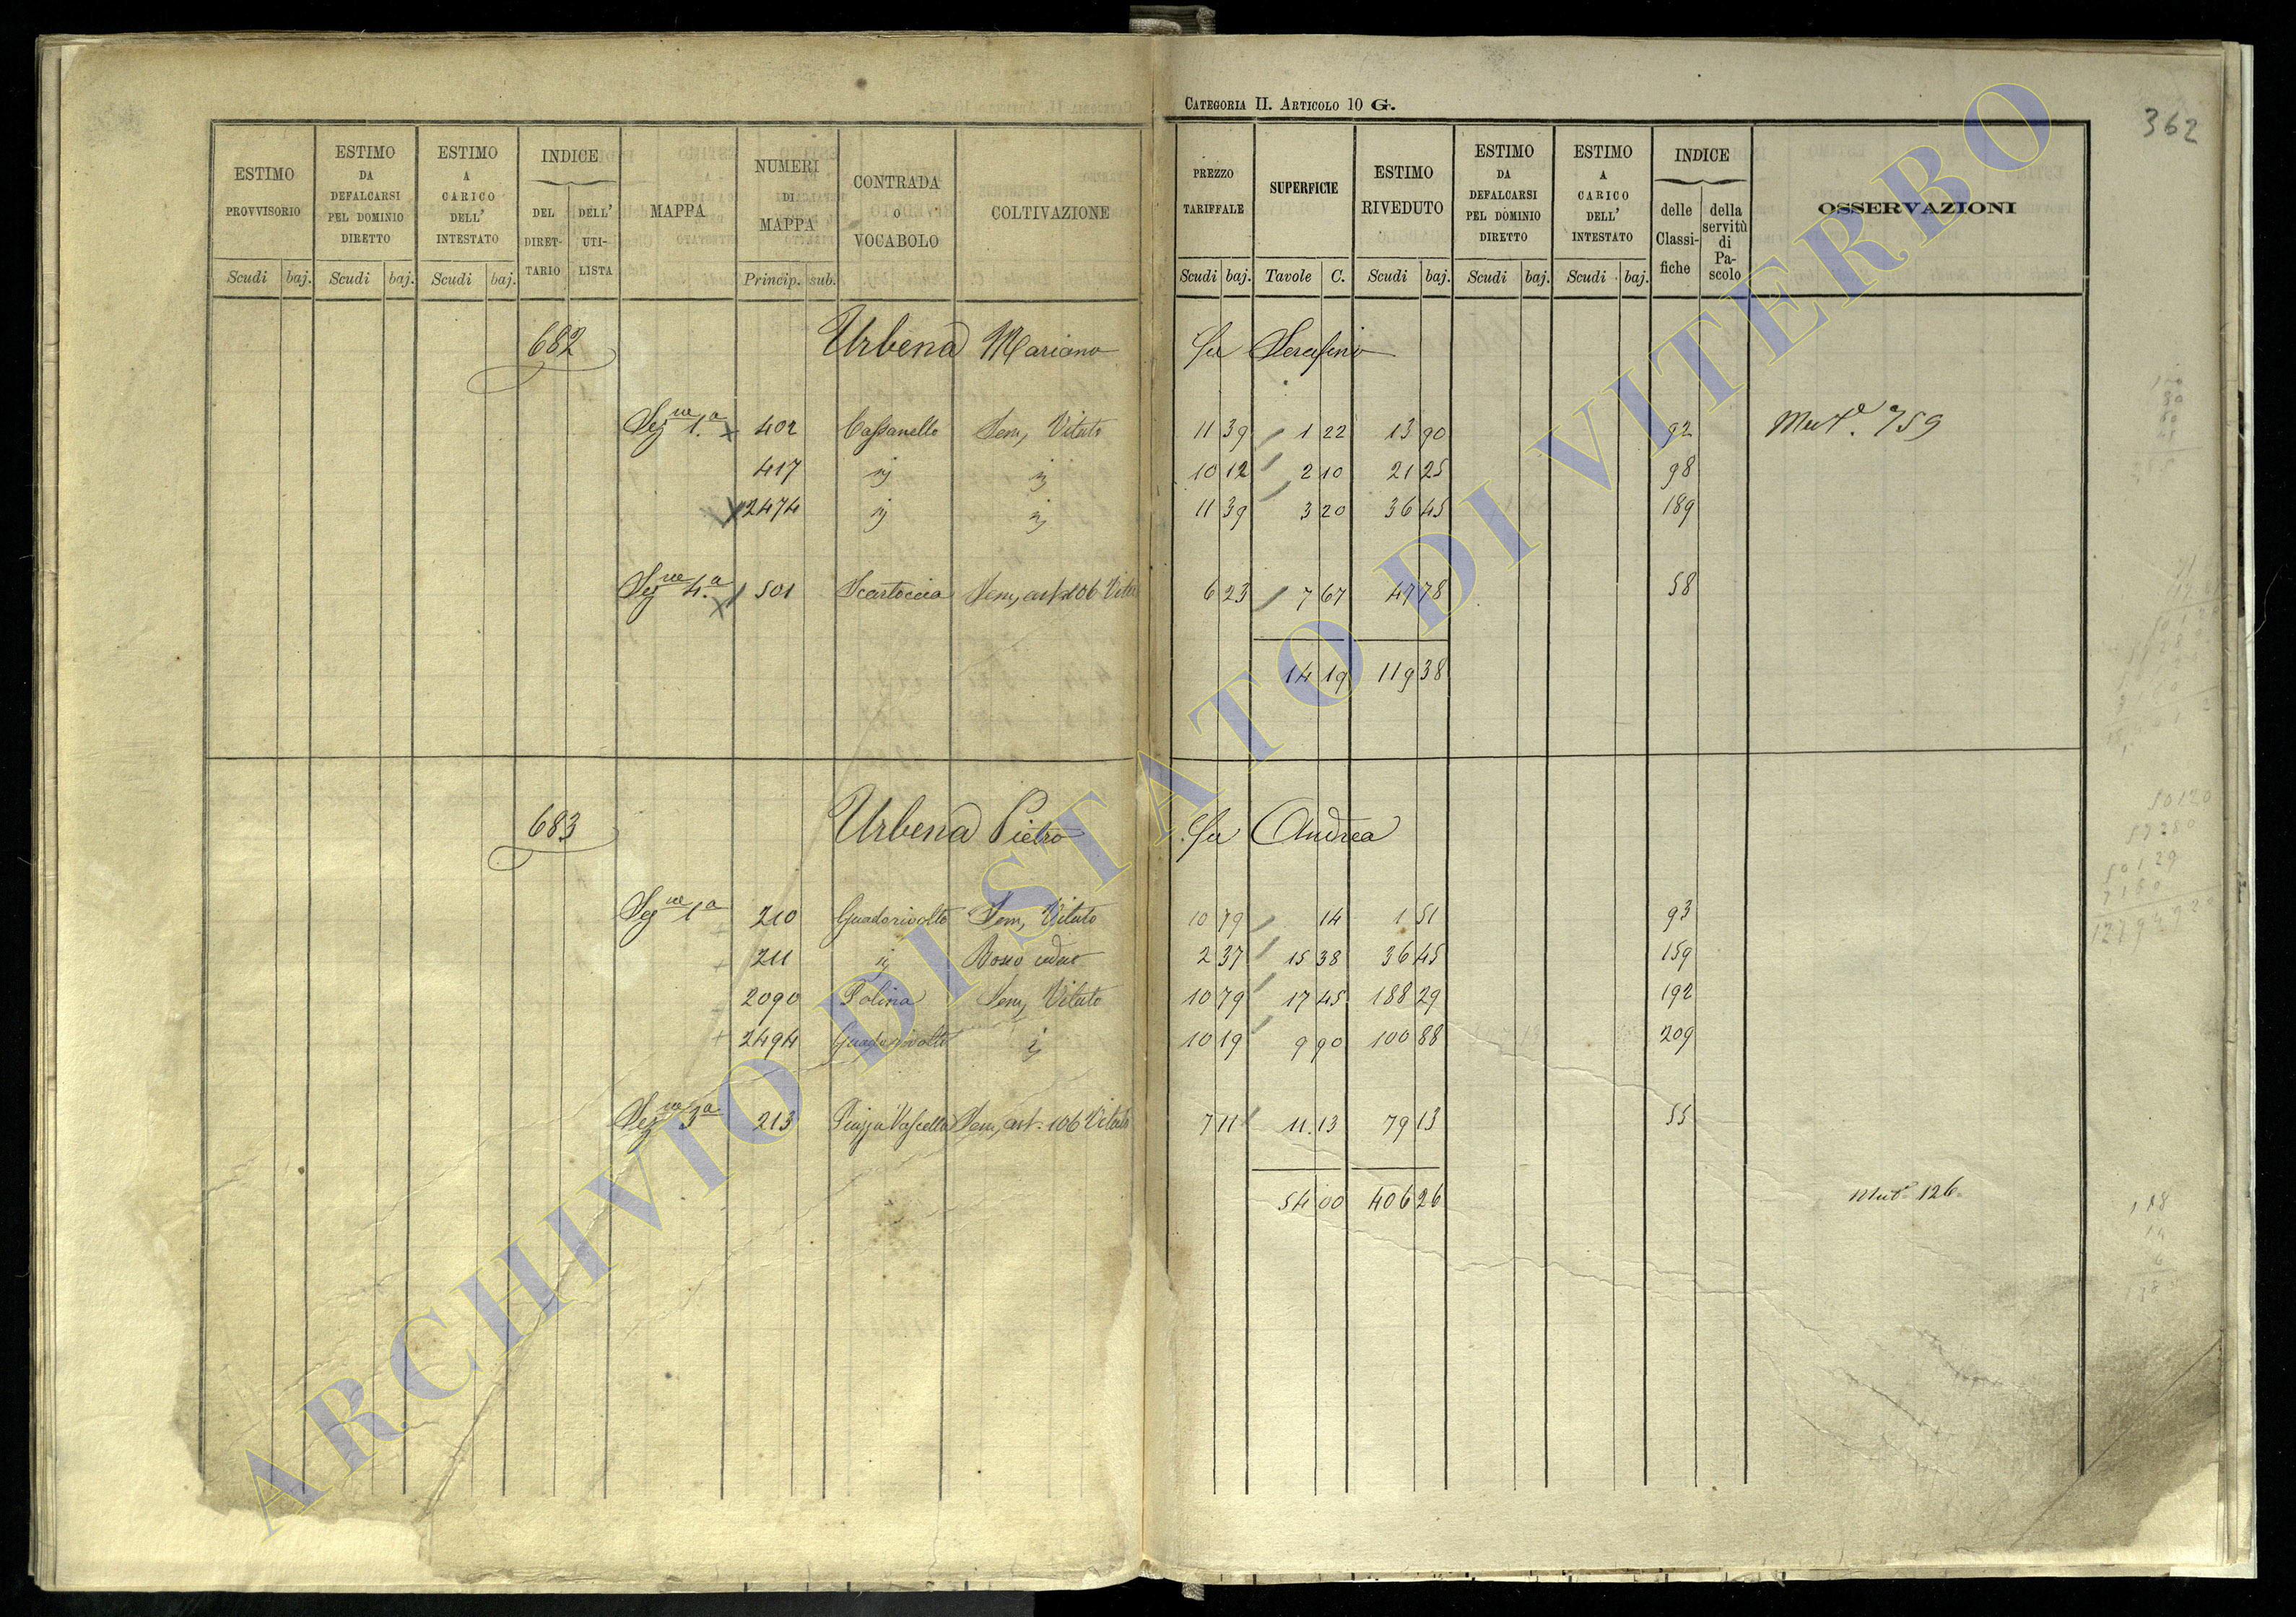 CATEGORIA II. ARTICOLO 10 G.
362
ESTIMO PROVVISORIO Scudi baj.
ESTIMO DA DEFALCARSI PEL DOMINIO DIRETTO Scudi baj.
ESTIMO A CARICO DELL' INTESTATO Scudi baj.
INDICE DEL DIRETTARIO DELL' UTILISTA
MAPPA
NUMERI DI MAPPA Princip. sub.
CONTRADA O VOCABOLO
COLTIVAZIONE
PREZZO TARIFFALE Scudi baj.
SUPERFICIE Tavole C.
ESTIMO RIVEDUTO Scudi baj.
ESTIMO DA DEFALCARSI PEL DOMINIO DIRETTO Scudi baj.
ESTIMO A CARICO DELL' INTESTATO Scudi baj.
INDICE delle Classifiche della servitù di Pascolo
OSSERVAZIONI
682 Urbena Mariano fu Serafino
Sezne 1.a x 402 Cassanello Sem, Vitato 11 39 1 22 13 90 92 Mut.e 759
417 id id 10 12 2 10 21 25 98
x 2474 id id 11 39 3 20 36 45 189
Sezne 4.a x 501 Scartoccia Sem, art 106 Vitato 6 23 7 67 47 78 58
14 19 119 38
683 Urbena Pietro fu Andrea
Sezne 1a 210 Guadorivolto Sem, Vitato 10 79 14 1 51 93
211 id Bosco ceduo 2 37 15 38 36 45 159
2090 Polina Sem, Vitato 10 79 17 45 188 29 192
2494 Guadorivolto id 10 19 9 90 100 88 209
Sezne 3a 213 Piazza Vascella Sem, art. 106 Vitato 7 11 11.13 79 13 55
54 00 406 26
Mut.e 126
ARCHIVIO DI STATO DI VITERBO